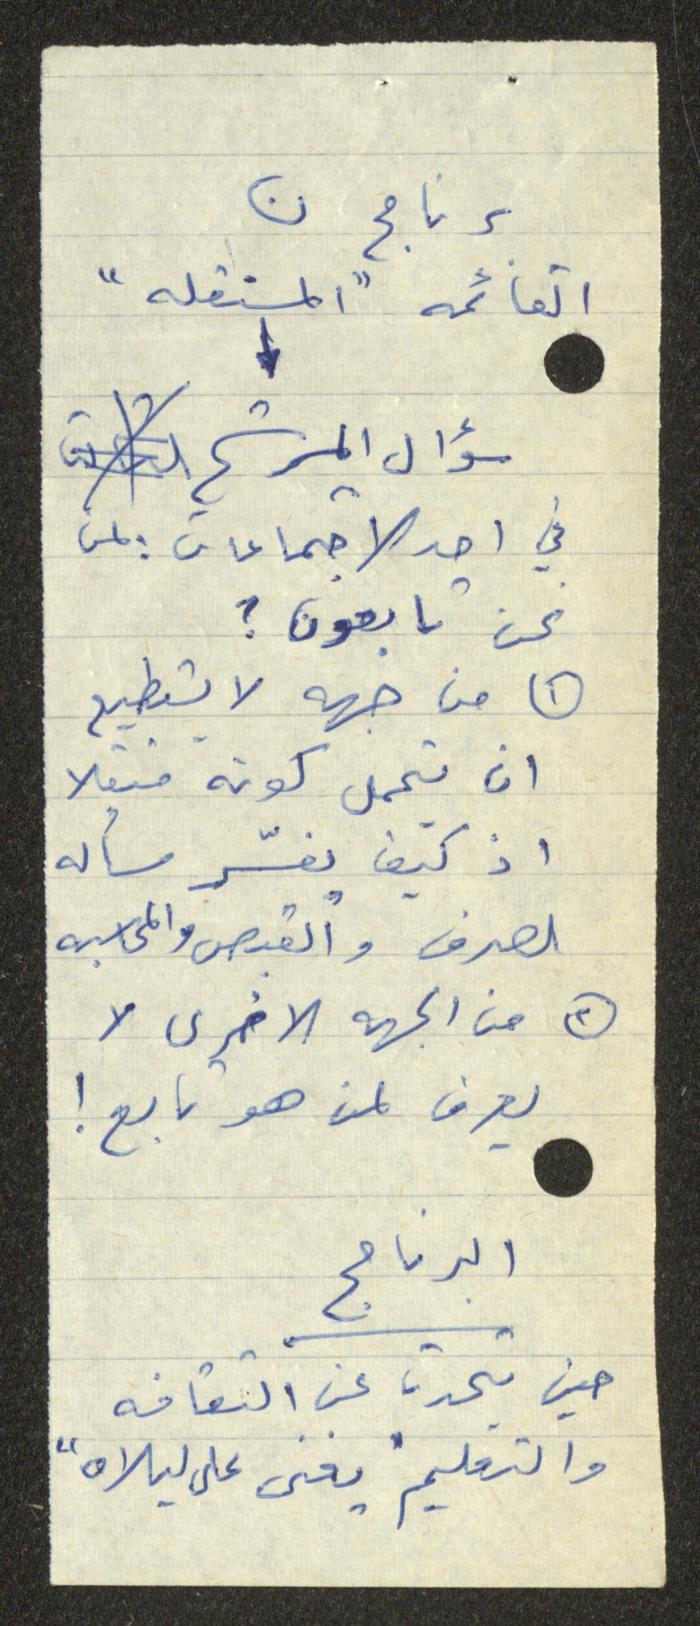 برنامج ن
القائمه "المستقله"
سؤال المرشح
في احد الاجتماعات: لمن
نحن تابعون؟
① من جهه لا يستطيع
ان يتحمل كونه مستقلا
اذ كيف يفسّر مسأله
الصرف والقبض والمحاسبه
② من الجهه الاخرى لا
يعرف لمن هو تابع!
البرنامج
حين يتحدث عن الثقافه
والتعليم "يغنى على ليلاه"